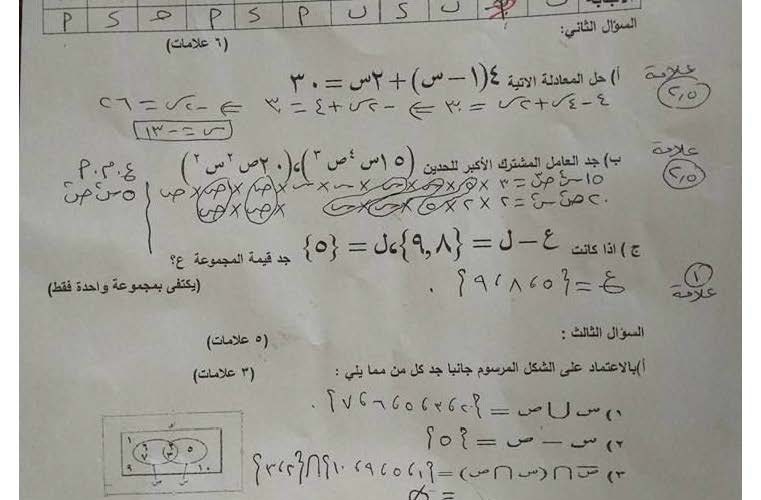 الاجابة
د هـ S P S U U P S P
السؤال الثاني:
(٦ علامات)
أ) حل المعادلة الاتية ٤(١ – س) + ٢س = ٣٠
علامة ٢,٥
٤ - ٤س + ٢س = ٣٠ ⇐ -٢س + ٤ = ٣٠ ⇐ -٢س = ٢٦
س = -١٣
ب) جد العامل المشترك الأكبر للحدين (١٥س٤ ص٣)، (٢٠ص٢ س٢)
علامة ٢,٥
ع.م.أ
٥س٢ص٢
ج) اذا كانت ع – ل = {٨,٩}، ل = {٥} جد قيمة المجموعة ع؟
(يكتفى بمجموعة واحدة فقط)
١ علامة
ع = {٥، ٨، ٩} .
السؤال الثالث :
(٥ علامات)
أ) بالاعتماد على الشكل المرسوم جانبا جد كل من مما يلي :
(٣ علامات)
١) س ∪ ص = {٢، ٣، ٥، ٦، ٧} .
٢) س – ص = {٥}
٣) ص̄ ∩ (س ∩ ص) = {١، ٥، ٩، ١٠} ∩ {٢، ٣}
= ∅